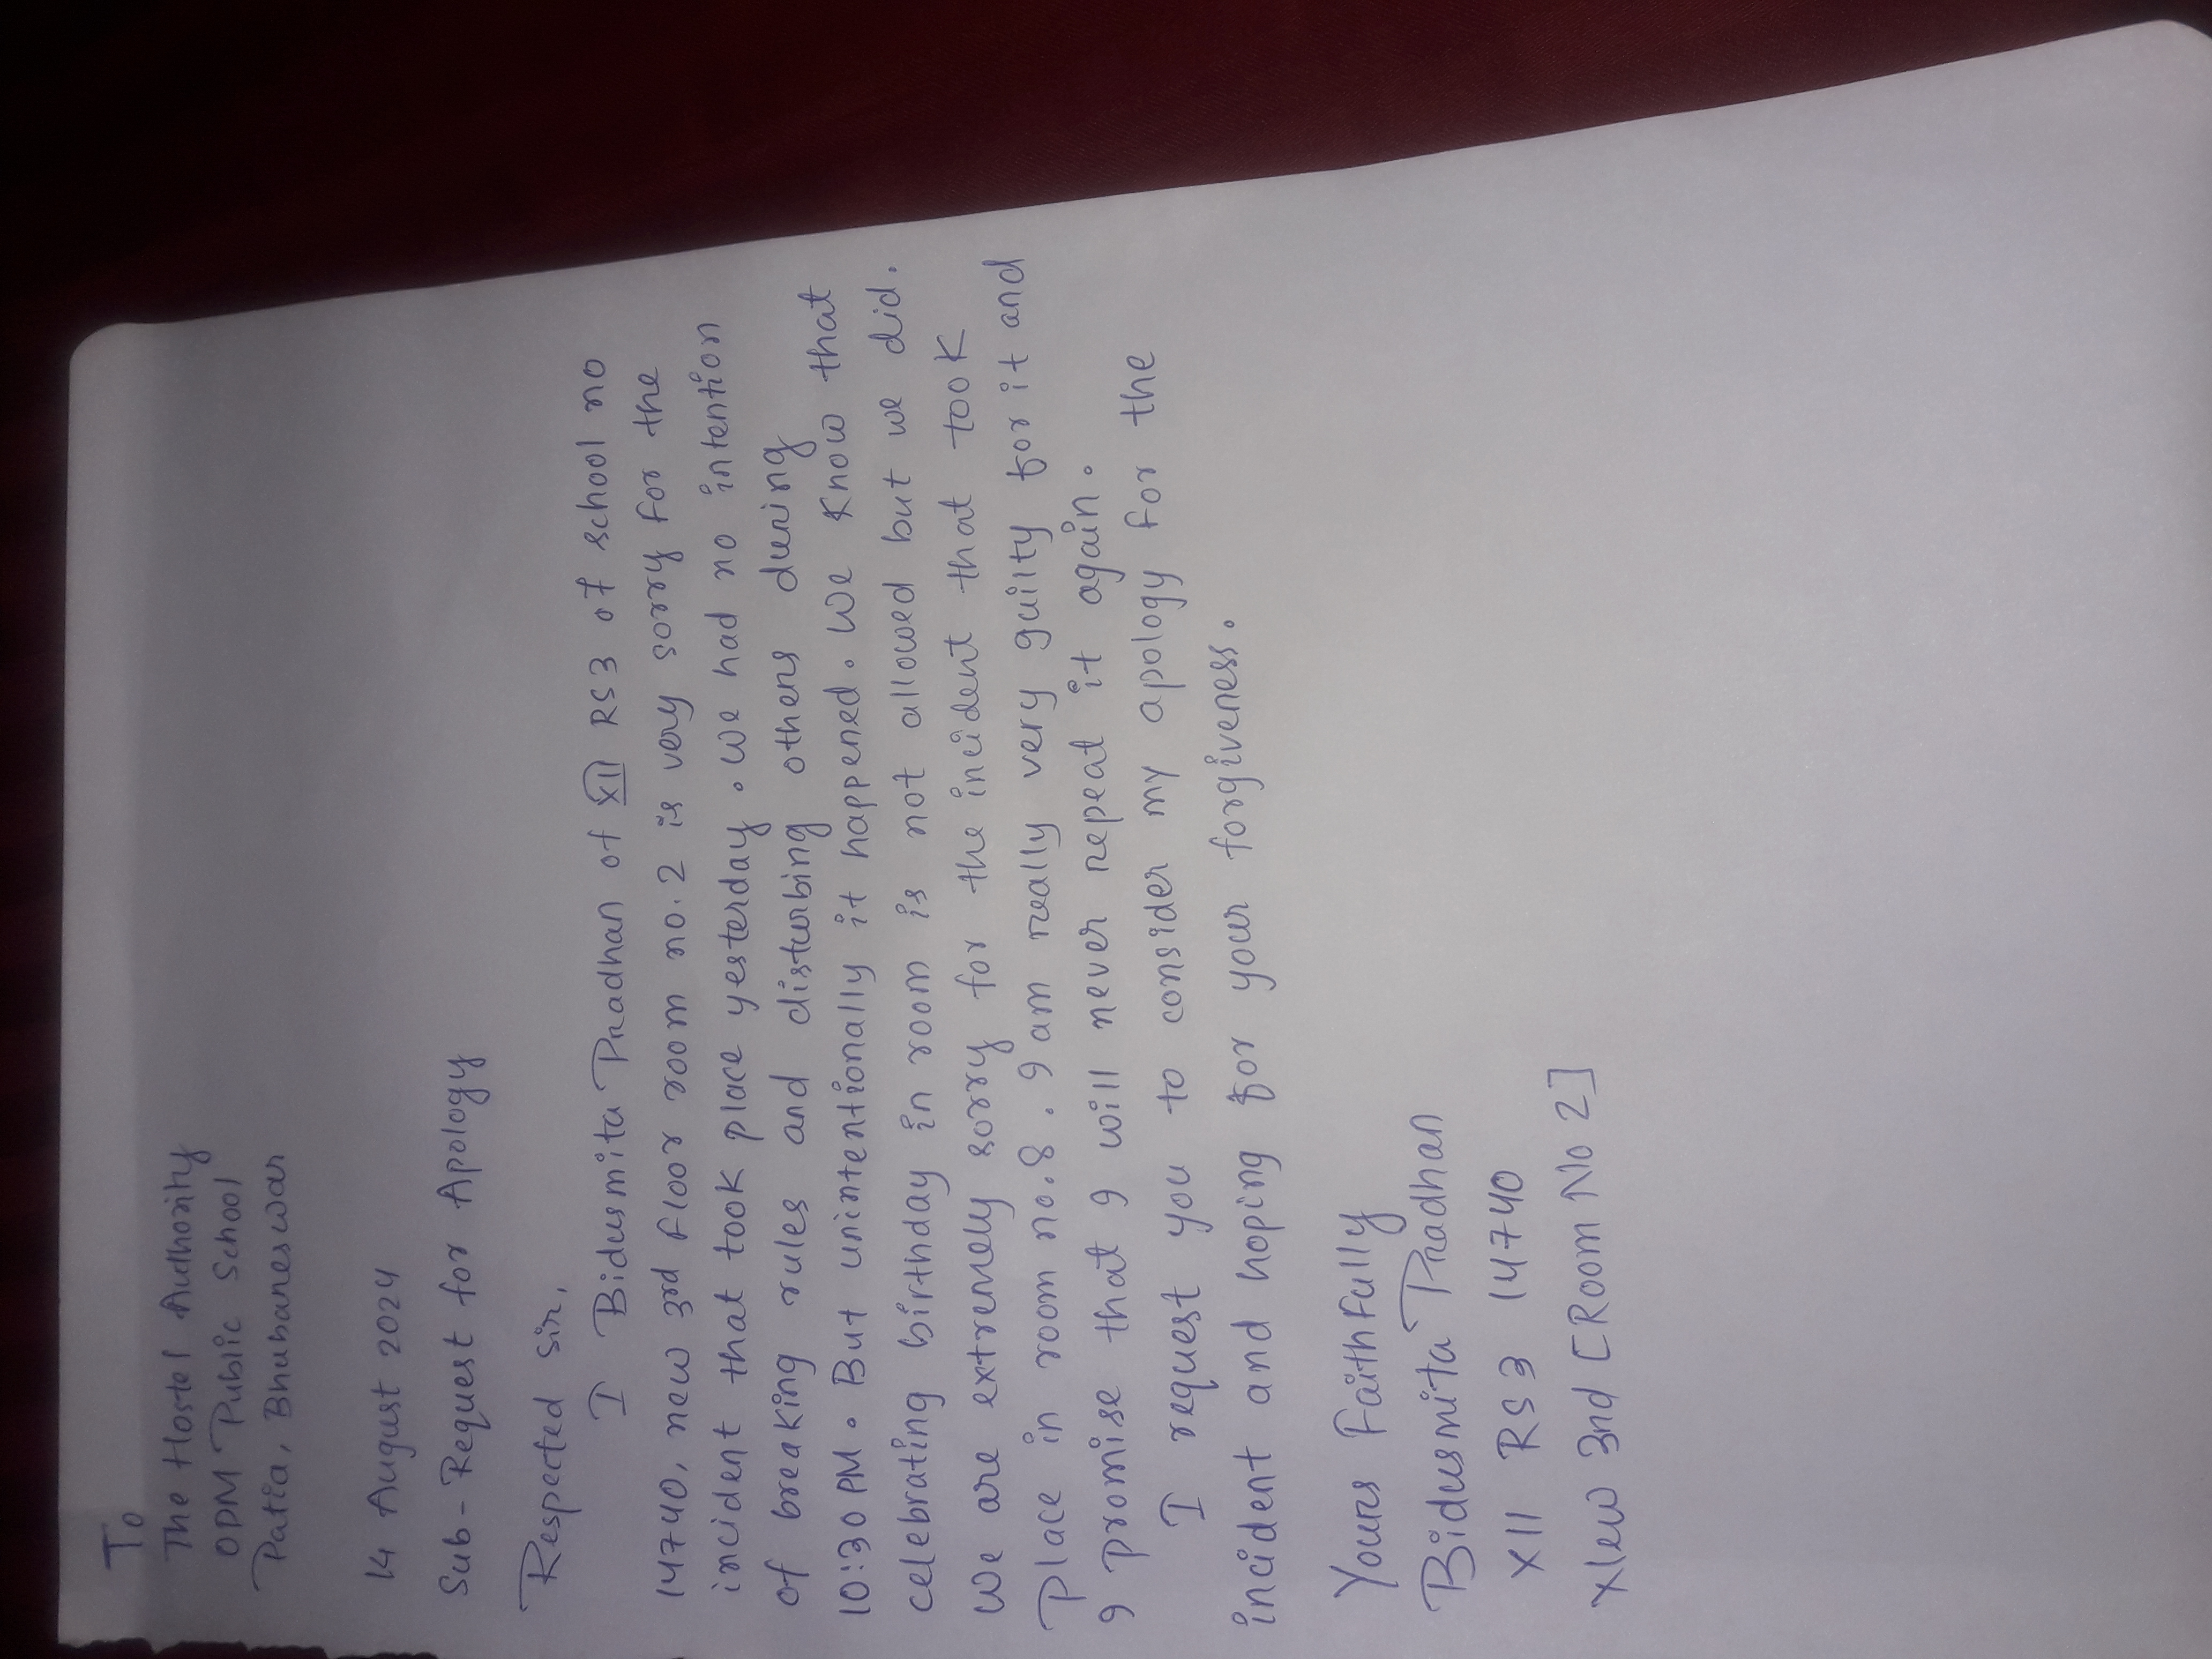 To
The Hostel Authority
ODM Public School
Patia, Bhubaneswar
14 August 2024
Sub - Request for Apology
Respected sir,
I Bidusmita Pradhan of XII RS3 of school no
14740, new 3rd floor room no. 2 is very sorry for the
incident that took place yesterday. We had no intention
of breaking rules and disturbing others during
10:30 PM. But unintentionally it happened. We know that
celebrating birthday in room is not allowed but we did.
We are extremely sorry for the incident that took
Place in room no. 8. I am really very guilty for it and
I promise that I will never repeat it again.
I request you to consider my apology for the
incident and hoping for your forgiveness.
Yours Faithfully
Bidusmita Pradhan
XII RS3 14740
New 3rd [Room No 2]